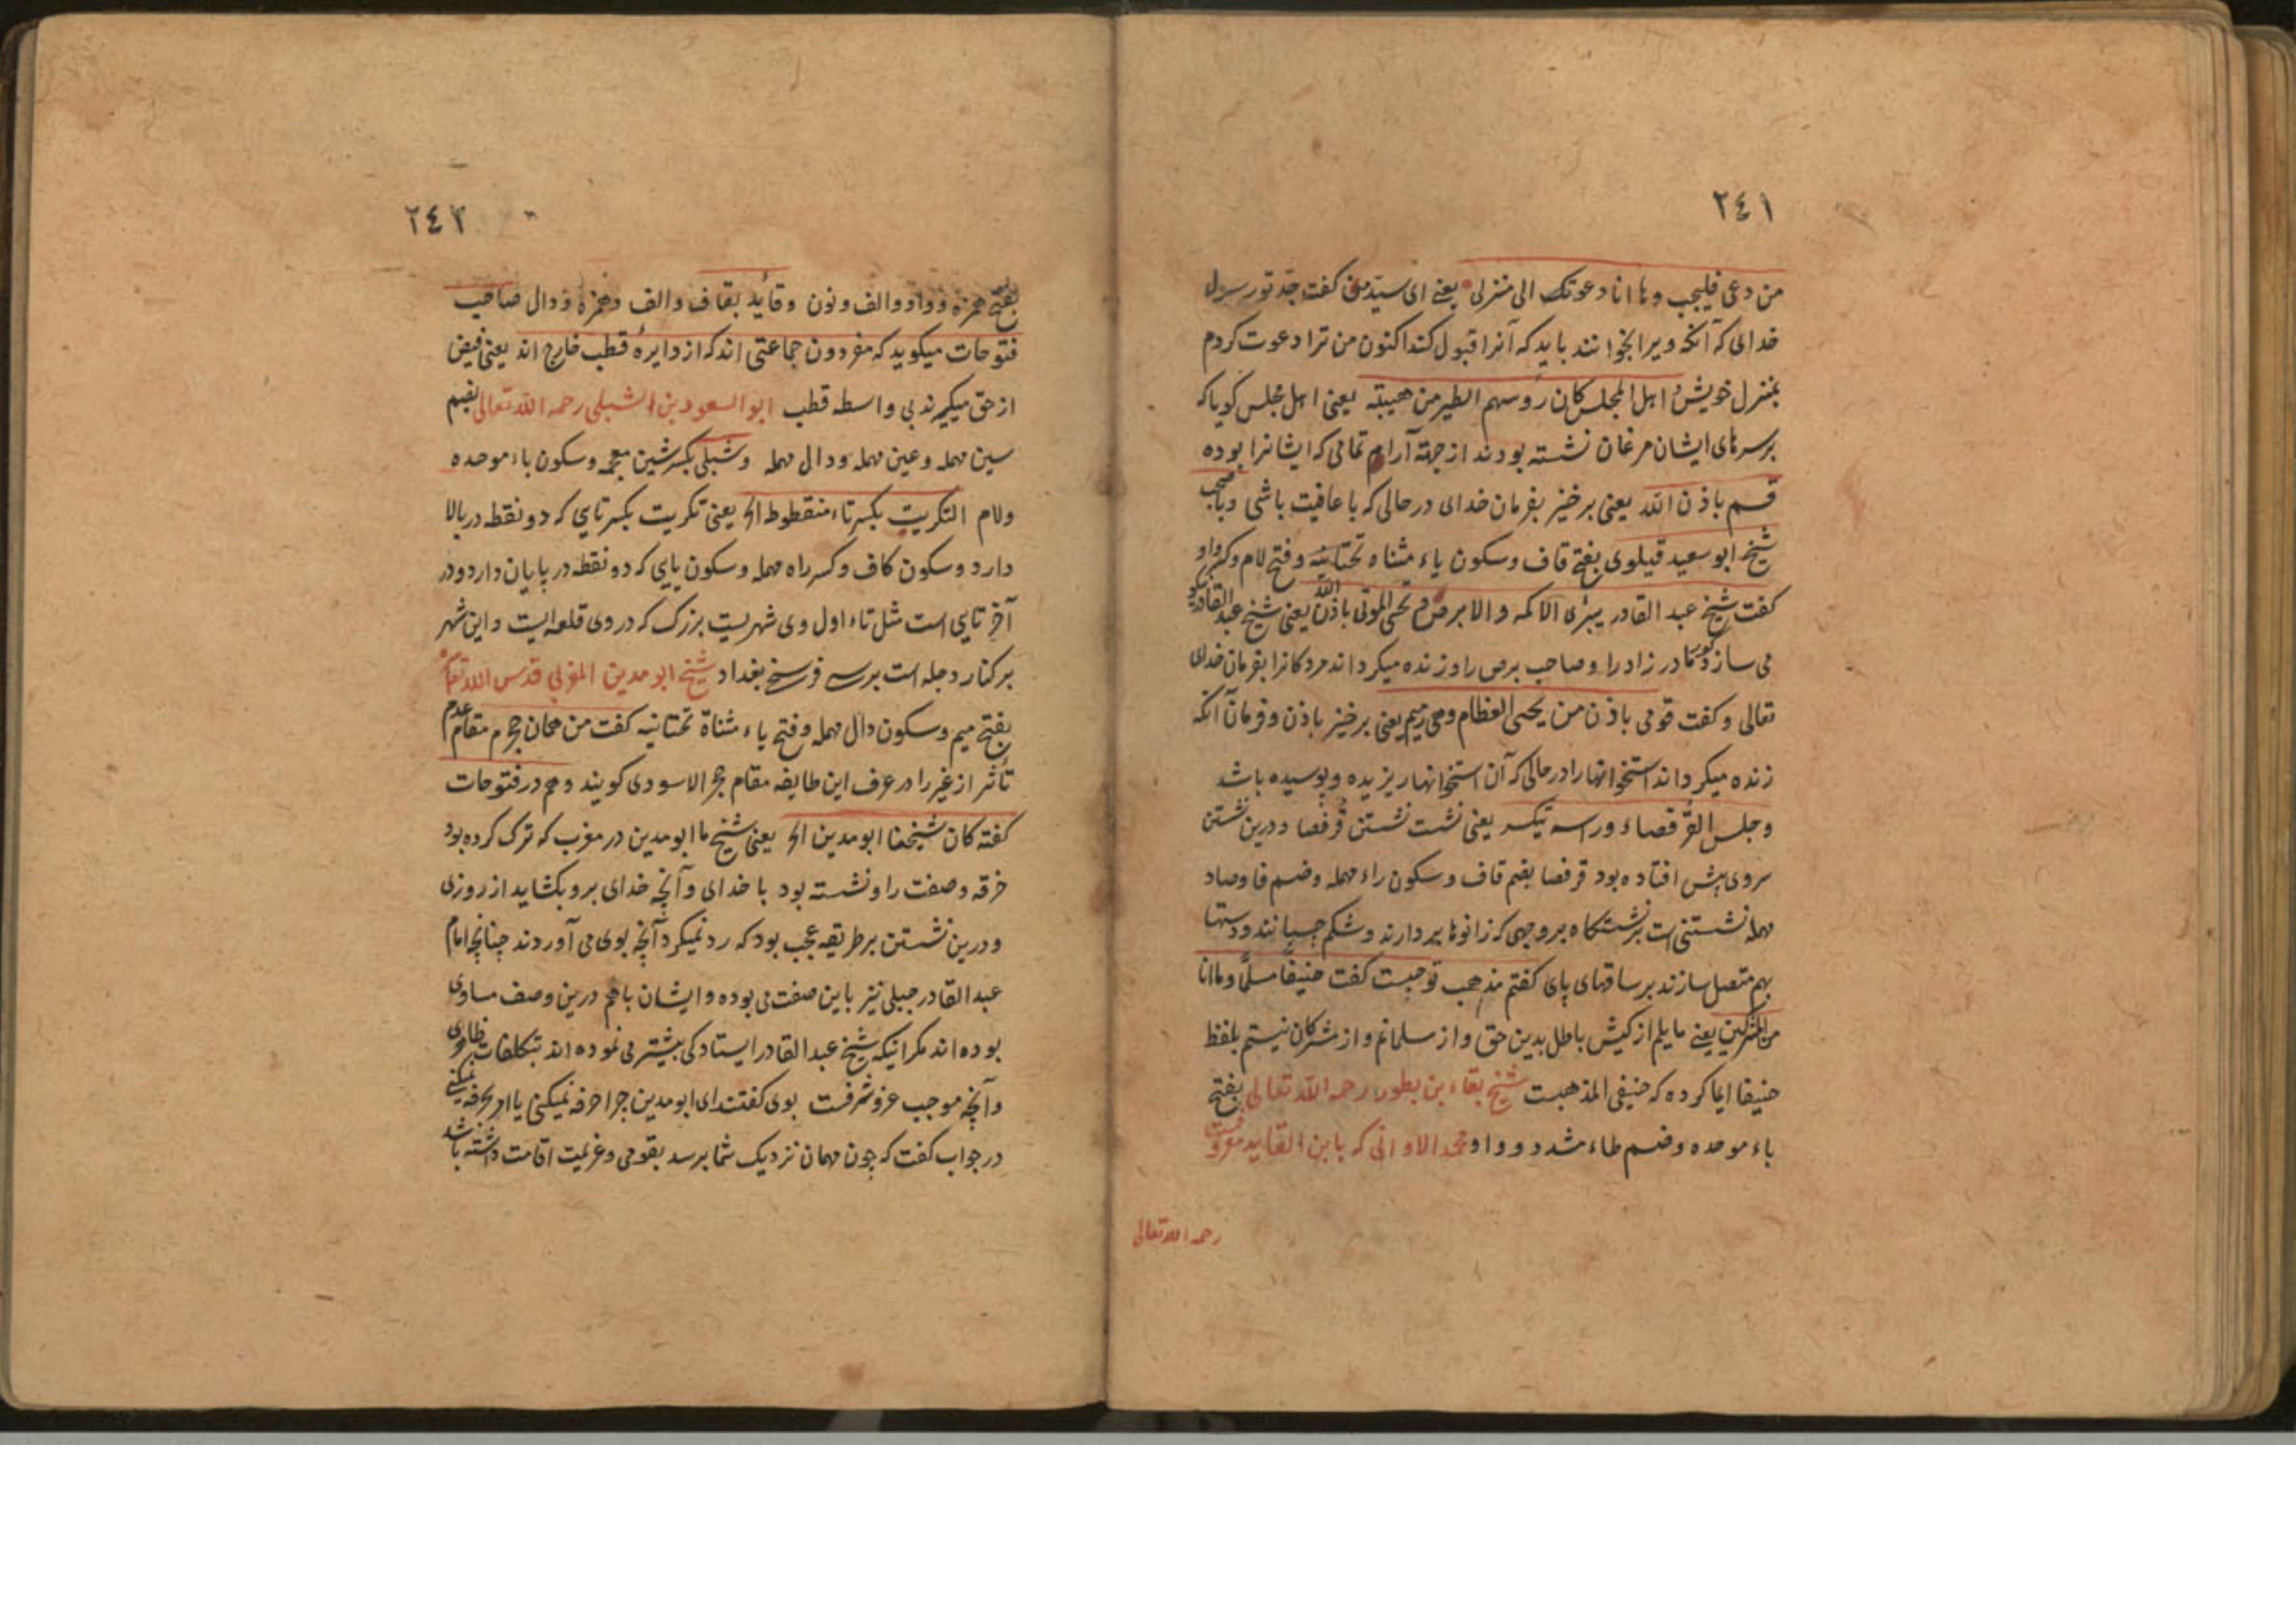 ٢٤١
من دعی فلیجب وها انا دعوتک الی منزلی یعنی ای سید من کفت جد تو رسول
خدای که آنکه ویرا بخوانند باید که آنرا قبول کند اکنون من ترا دعوت کردم
بمنزل خویش اهل المجلس کان رؤسهم الطیر من هیبته یعنی اهل مجلس کویا که
برسرهای ایشان مرغان نشسته بودند از جهة آرام تمامی که ایشانرا بوده
قسم باذن الله یعنی برخیز بفرمان خدای در حالی که با عافیت باشی
شیخ ابو سعید قیلوی بفتح قاف وسکون یاء مثناه تحتانیه وفتح لام وکسر واو
کفت شیخ عبد القادر یبرئ الاکمه والابرص و یحی الموتی باذن الله یعنی شیخ عبد القادر
می سازد کور مادر زاد را وصاحب برص را وزنده میکرداند مردکانرا بفرمان خدای
تعالی وکفت قومی باذن من یحیی العظام وهی رمیم یعنی برخیز باذن وفرمان آنکه
زنده میکرداند استخوانها را در حالی که آن استخوانها ریزیده وپوسیده باشد
وجلس القرفصاء وراسه یعنی نشست نشستن قرفصا ودرین نشستن
سروی پیش افتاده بود قرفصا بضم قاف وسکون راء مهمله وضم فا وصاد
مهمله نشستنی است برنشستکاه بروجهی که زانوها بردارند وشکم چسپانند ودستها
بهم متصل سازند برساقهای پای کفتم مذهب تو چیست کفت حنیفا مسلما وما انا
من المشرکین یعنی مایلم از کیش باطل بدین حق واز مسلمانم واز مشرکان نیستم بلفظ
حنیفا ایما کرده که حنیفی المذهبست شیخ بقاء بن بطور رحمه الله تعالی بفتح
باء موحده وضم طاء مشدد وواو محمد الاوانی که بابن القاید معروفست
رحمه الله تعالی
٢٤٢
بفتح همزه وواو والف ونون وقائد بقاف والف وهمزه ودال صاحب
فتوحات میکوید که مفردون جماعتی اند که از دایرهٔ قطب خارج اند یعنی فیض
از حق میکیرند بی واسطه قطب ابو السعود بن الشبلی رحمه الله تعالی بضم
سین مهمله وعین مهمله ودال مهمله وشبلی بکسر شین معجمه وسکون باء موحده
ولام التکریت بکسر تاء منقطوط الخ یعنی تکریت بکسر تایی که دو نقطه در بالا
دارد وسکون کاف وکسر راء مهمله وسکون یایی که دو نقطه در پایان دارد ودر
آخر تایی است مثل تاء اول وی شهریست بزرک که دروی قلعه ایست واین شهر
برکنار دجله است برسی فرسخ بغداد شیخ ابو مدین المغربی قدس الله تعالی
بفتح میم وسکون دال مهمله وفتح یاء مثناة تحتانیه کفت من همان حجرم مقام عدم
تأثر از غیر را در عرف این طایفه مقام حجر الاسودی کویند وهم در فتوحات
کفته کان شیخنا ابو مدین الخ یعنی شیخ ما ابو مدین در مغرب که ترک کرده بود
خرقه وصفت را ونشسته بود با خدای وآنچه خدای برو بکشاید از روزی
ودرین نشستن برطریقه عجب بود که رد نمیکرد آنچه بوی می آوردند چنانچه امام
عبد القادر جیلی نیز باین صفت می بوده وایشان باهم درین وصف مساوی
بوده اند مکر اینکه شیخ عبد القادر ایستادکی بیشتر می نموده اند بتکلفات ظاهری
وآنچه موجب عز وشرفست بوی کفتند ای ابو مدین چرا حرفه نمیکنی یا امر بحرفه نمیکنی
در جواب کفت که چون مهمان نزدیک شما برسد بقومی وعزیمت اقامت داشته باشد